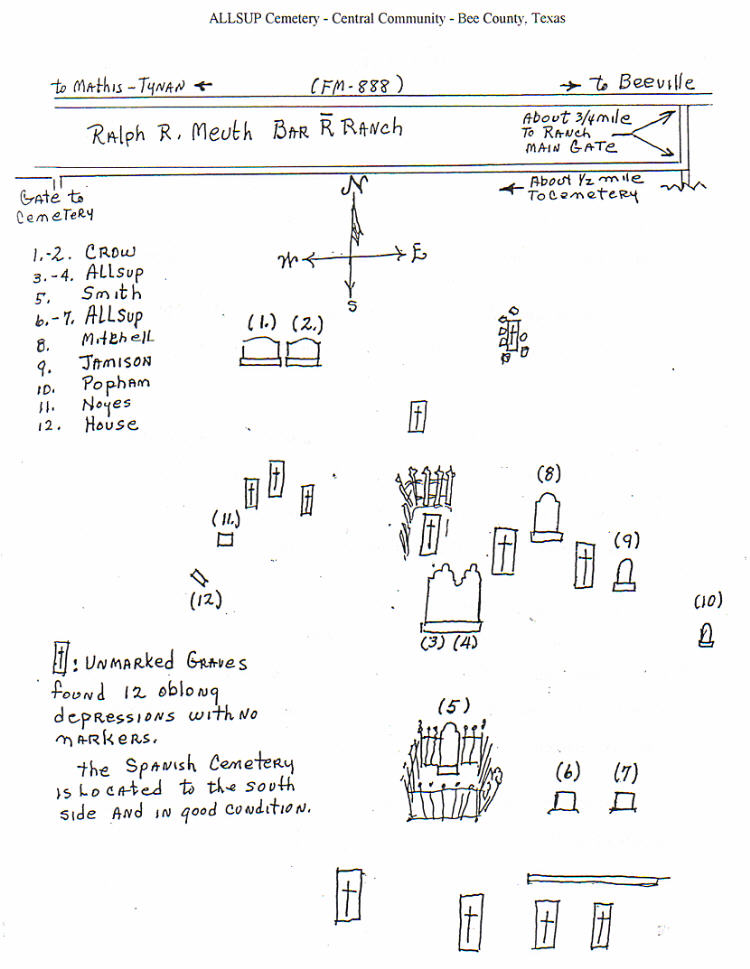 ALLSUP Cemetery - Central Community - Bee County, Texas
to Mathis - Tynan
(FM-888)
to Beeville
Ralph R. Meuth Bar R̅ Ranch
About 3/4 mile
To Ranch
Main Gate
Gate to
Cemetery
About 1/2 mile
To Cemetery
N
W
E
S
1.-2. Crow
3.-4. Allsup
5. Smith
6.-7. Allsup
8. Mitchell
9. Jamison
10. Popham
11. Noyes
12. House
(1.) (2.)
(8)
(11.)
(9)
(12)
(10)
(3) (4)
: Unmarked Graves
found 12 oblong
depressions with no
markers.
the Spanish Cemetery
is Located to the south
side And in good condition.
(5)
(6) (7)